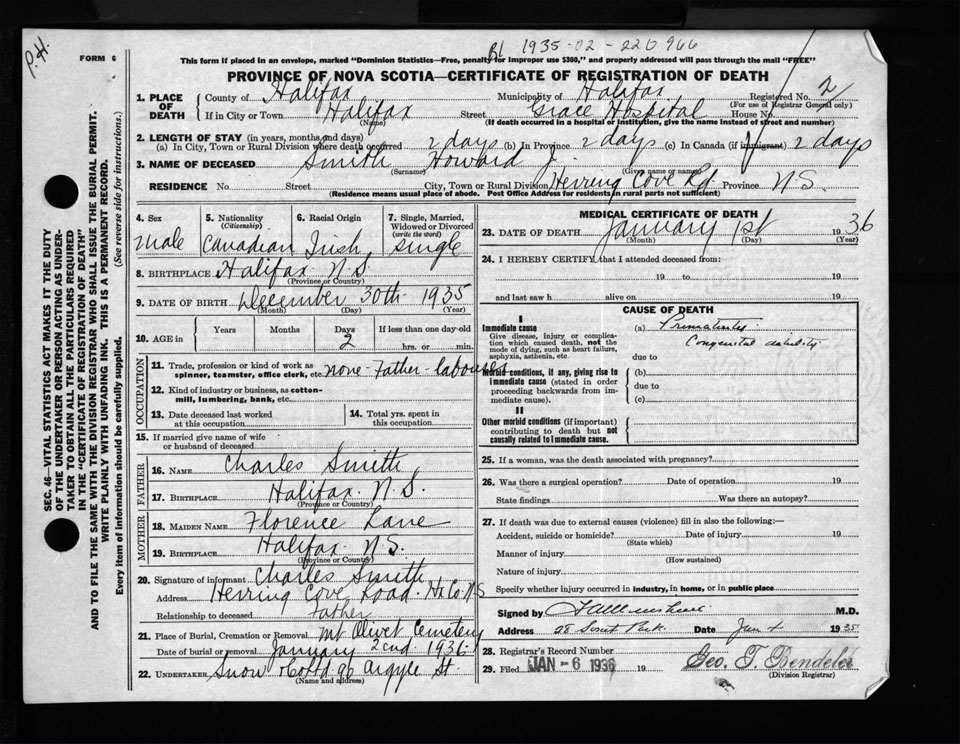 P.H.
FORM 6
RL 1935-02-220966
This form if placed in an envelope, marked "Dominion Statistics—Free, penalty for improper use $300," and properly addressed will pass through the mail "FREE"
PROVINCE OF NOVA SCOTIA—CERTIFICATE OF REGISTRATION OF DEATH
SEC. 46—VITAL STATISTICS ACT MAKES IT THE DUTY
OF THE UNDERTAKER OR PERSON ACTING AS UNDER-
TAKER TO OBTAIN ALL THE PARTICULARS REQUIRED
IN THE "CERTIFICATE OF REGISTRATION OF DEATH"
AND TO FILE THE SAME WITH THE DIVISION REGISTRAR WHO SHALL ISSUE THE BURIAL PERMIT.
WRITE PLAINLY WITH UNFADING INK. THIS IS A PERMANENT RECORD.
Every item of information should be carefully supplied. (See reverse side for instructions.)
1. PLACE OF DEATH County of Halifax Municipality of Halifax Registered No. 2
(For use of Registrar General only)
If in City or Town Halifax Street Grace Hospital House No.
(Name) (If death occurred in a hospital or institution, give the name instead of street and number)
2. LENGTH OF STAY (in years, months and days)
(a) In City, Town or Rural Division where death occurred 2 days (b) In Province 2 days (c) In Canada (if immigrant) 2 days
3. NAME OF DECEASED Smith Howard J.
(Surname) (Given name or names)
RESIDENCE No. Street City, Town or Rural Division Herring Cove Rd Province N.S.
(Residence means usual place of abode. Post Office Address for residents in rural parts not sufficient)
4. Sex Male
5. Nationality (Citizenship) Canadian
6. Racial Origin Irish
7. Single, Married, Widowed or Divorced (write the word) Single
8. BIRTHPLACE Halifax N.S.
(Province or Country)
9. DATE OF BIRTH December 30th 1935
(Month) (Day) (Year)
10. AGE in Years Months Days 2 If less than one day-old hrs. or min.
OCCUPATION
11. Trade, profession or kind of work as spinner, teamster, office clerk, etc. none - Father - labourer
12. Kind of industry or business, as cotton-mill, lumbering, bank, etc.
13. Date deceased last worked at this occupation
14. Total yrs. spent in this occupation
15. If married give name of wife or husband of deceased
FATHER
16. NAME Charles Smith
17. BIRTHPLACE Halifax N.S.
(Province or Country)
MOTHER
18. MAIDEN NAME Florence Lane
19. BIRTHPLACE Halifax N.S.
(Province or Country)
20. Signature of informant Charles Smith
Address Herring Cove Road Hx Co. N.S
Relationship to deceased Father
21. Place of Burial, Cremation or Removal Mt Olivet Cemetery
Date of burial or removal January 2nd 1936
22. UNDERTAKER Snow & Co Ltd 90 Argyle St.
(Name and address)
MEDICAL CERTIFICATE OF DEATH
23. DATE OF DEATH January 1st 1936
(Month) (Day) (Year)
24. I HEREBY CERTIFY that I attended deceased from:
19 to 19
and last saw h alive on 19
CAUSE OF DEATH
I
Immediate cause
Give disease, injury or complication which caused death, not the mode of dying, such as heart failure, asphyxia, asthenia, etc.
(a) Prematurity
Congenital debility
due to
Morbid conditions, if any, giving rise to immediate cause (stated in order proceeding backwards from immediate cause).
(b)
due to
(c)
II
Other morbid conditions (if important) contributing to death but not causally related to immediate cause.
25. If a woman, was the death associated with pregnancy?
26. Was there a surgical operation? Date of operation 19
State findings Was there an autopsy?
27. If death was due to external causes (violence) fill in also the following:—
Accident, suicide or homicide? Date of injury 19
(State which)
Manner of injury
(How sustained)
Nature of injury
Specify whether injury occurred in industry, in home, or in public place
Signed by M.D.
Address Park Date Jan 4 1935
28. Registrar's Record Number
29. Filed JAN -6 1936 19 Geo. T. Bendeler
(Division Registrar)